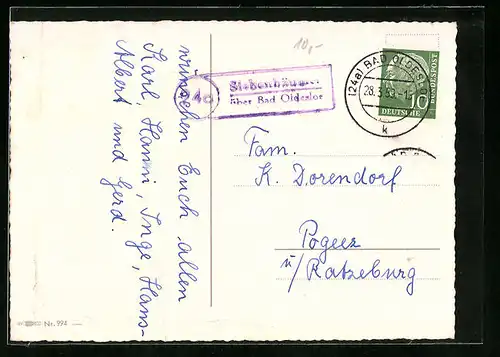 wünschen Euch allen
Karl, Hanni, Inge, Hans-
Albert und Gerd.
Nr. 994
10,-
Siebenbäumen
über Bad Oldesloe
(24a) BAD OLDES
28.3.
k
10
DEUTSCHE
BUNDESPOST
Fam.
K. Dorendorf
Pogeez
ü/Ratzeburg